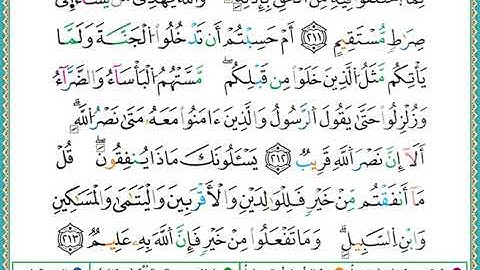 صِرَٰطٍ مُّسْتَقِيمٍ ٢١١ أَمْ حَسِبْتُمْ أَن تَدْخُلُوا۟ ٱلْجَنَّةَ وَلَمَّا
يَأْتِكُم مَّثَلُ ٱلَّذِينَ خَلَوْا۟ مِن قَبْلِكُم ۖ مَّسَّتْهُمُ ٱلْبَأْسَآءُ وَٱلضَّرَّآءُ
وَزُلْزِلُوا۟ حَتَّىٰ يَقُولَ ٱلرَّسُولُ وَٱلَّذِينَ ءَامَنُوا۟ مَعَهُۥ مَتَىٰ نَصْرُ ٱللَّهِ ۗ
أَلَآ إِنَّ نَصْرَ ٱللَّهِ قَرِيبٌ ٢١٢ يَسْـَٔلُونَكَ مَاذَا يُنفِقُونَ ۖ قُلْ
مَآ أَنفَقْتُم مِّنْ خَيْرٍ فَلِلْوَٰلِدَيْنِ وَٱلْأَقْرَبِينَ وَٱلْيَتَٰمَىٰ وَٱلْمَسَٰكِينِ
وَٱبْنِ ٱلسَّبِيلِ ۗ وَمَا تَفْعَلُوا۟ مِنْ خَيْرٍ فَإِنَّ ٱللَّهَ بِهِۦ عَلِيمٌ ٢١٣